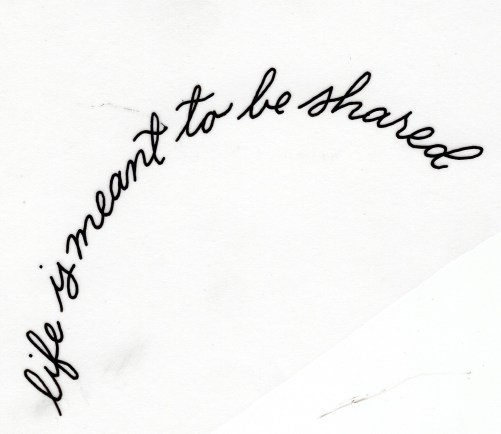 life is meant to be shared